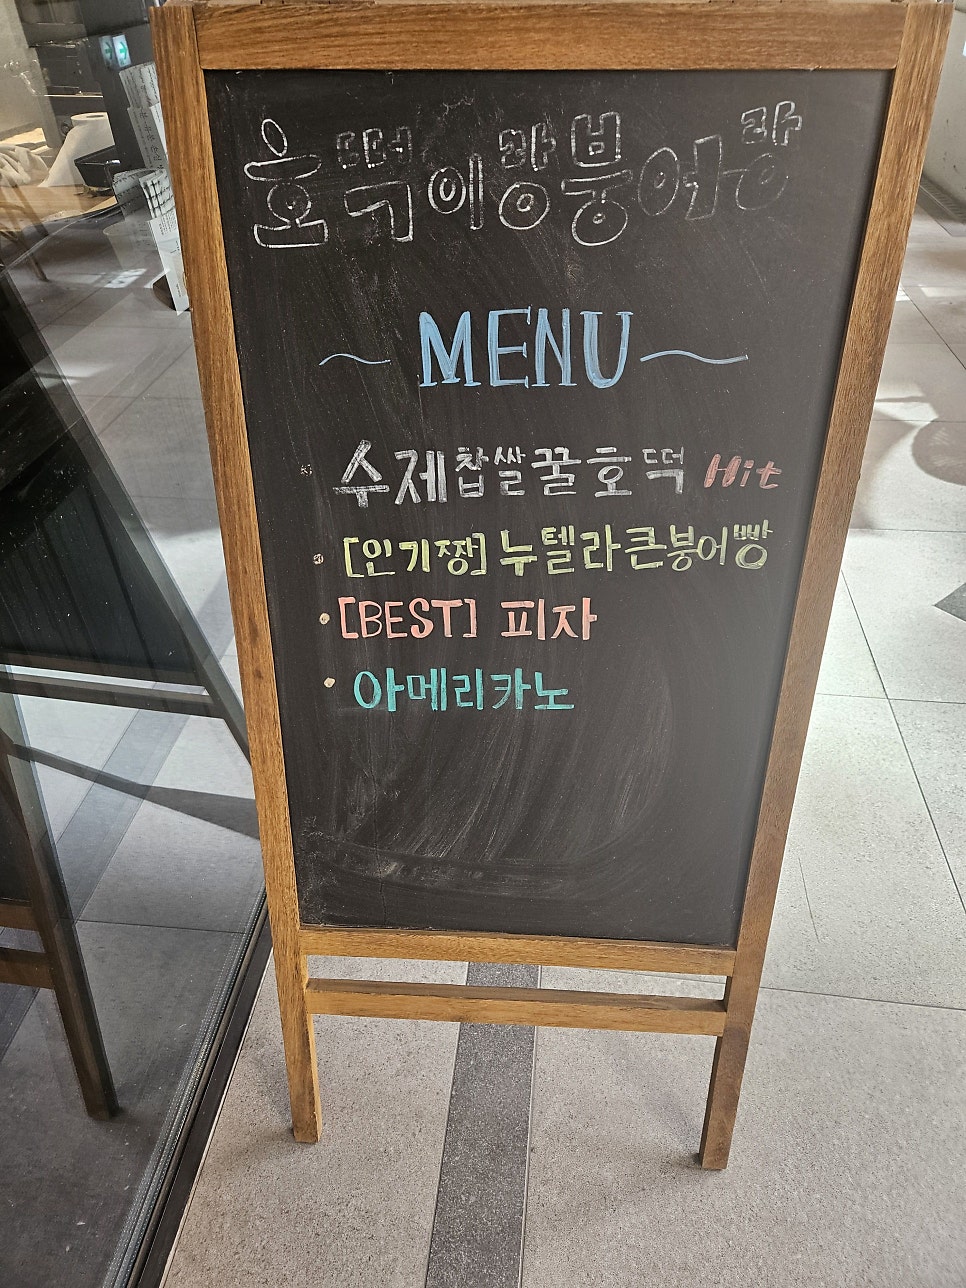 호떡이랑붕어랑
~ MENU ~
수제찹쌀꿀호떡 Hit
· [인기짱] 누텔라큰붕어빵
· [BEST] 피자
· 아메리카노